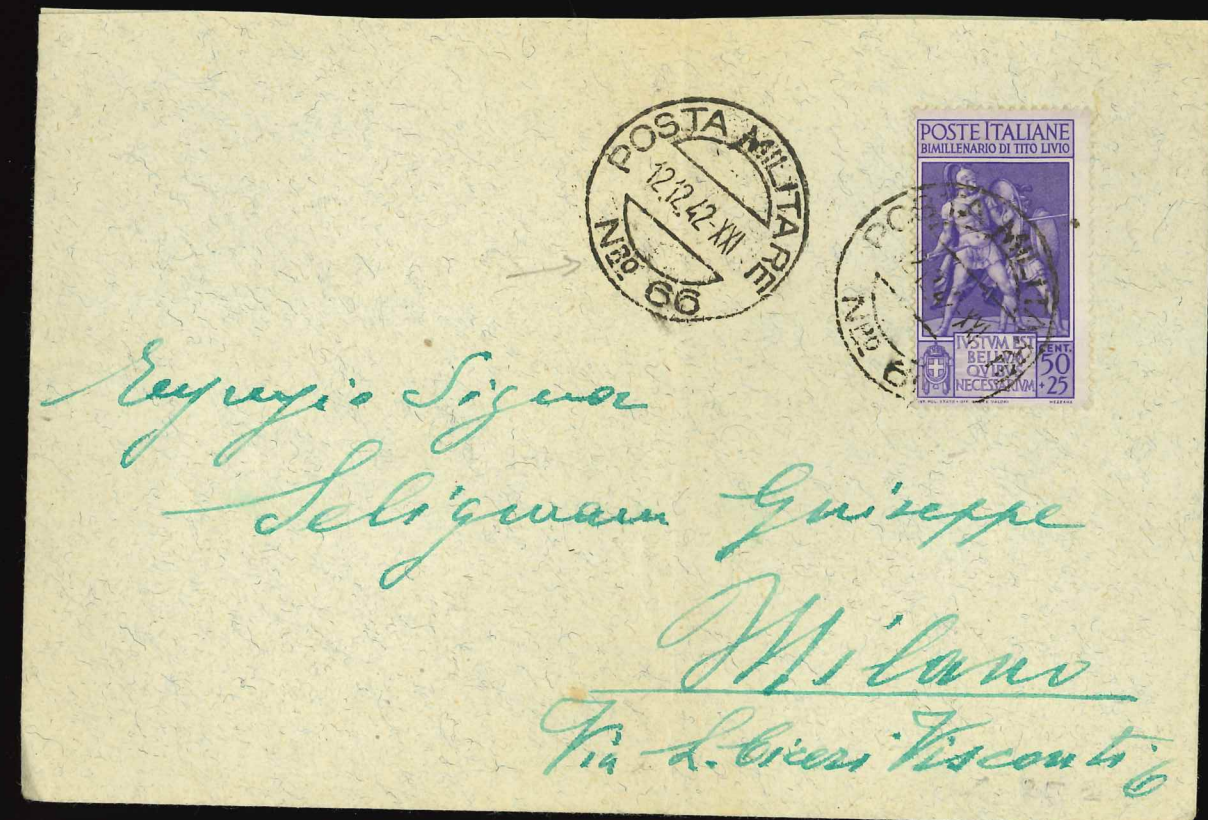 POSTA MILITARE
12.12.42-XXI
Nro 66
POSTE ITALIANE
BIMILLENARIO DI TITO LIVIO
POSTA MILITARE
Nro 66
IVSTVM EST
BELLVM
QVIBVS
NECESSARIVM
CENT.
50
+25
MEZZANA
Signor
Seligmann Guiseppe
Milano
Via L. Biceri Visconti 6